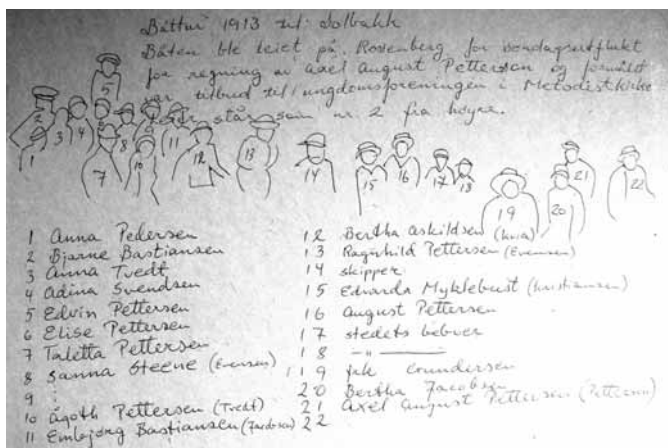 Båttur 1913 til Solbakk
Båten ble leiet på Rosenberg for søndagsutflukt
for regning av Axel August Pettersen og formålet
var tilbud til ungdomsforeningen i Metodistkirke
står som nr. 2 fra høyre.
5
2 3 4 6 8 9 11
1 7 10 12 13 14 15 16 17 18 19 20 21 22
1 Anna Pedersen
2 Bjarne Bastiansen
3 Anna Tvedt
4 Adina Svendsen
5 Edvin Pettersen
6 Elise Pettersen
7 Taletta Pettersen
8 Sanna Steene (Evensen)
9
10 Ågoth Pettersen (Tvedt)
11 Embjørg Bastiansen (Jacobsen)
12 Bertha Askildsen (Kvia)
13 Ragnhild Pettersen (Evensen)
14 skipper
15 Edvarda Myklebust (Kristiansen)
16 August Pettersen
17 stedets beboer
18 —"—
19 frk Gundersen
20 Bertha Jacobsen
21 Axel August Pettersen (Pettersen)
22